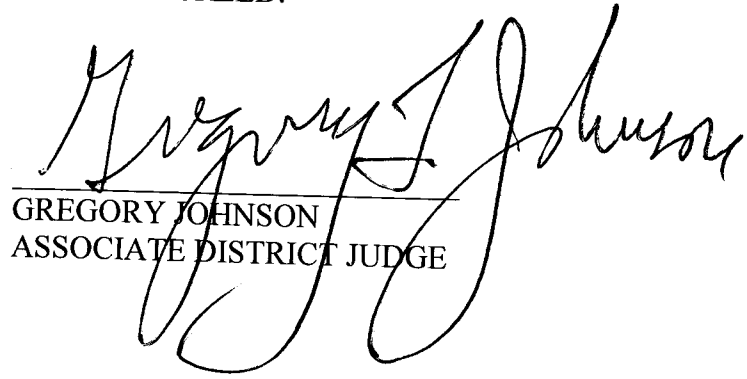 Gregory J Johnson
GREGORY JOHNSON
ASSOCIATE DISTRICT JUDGE